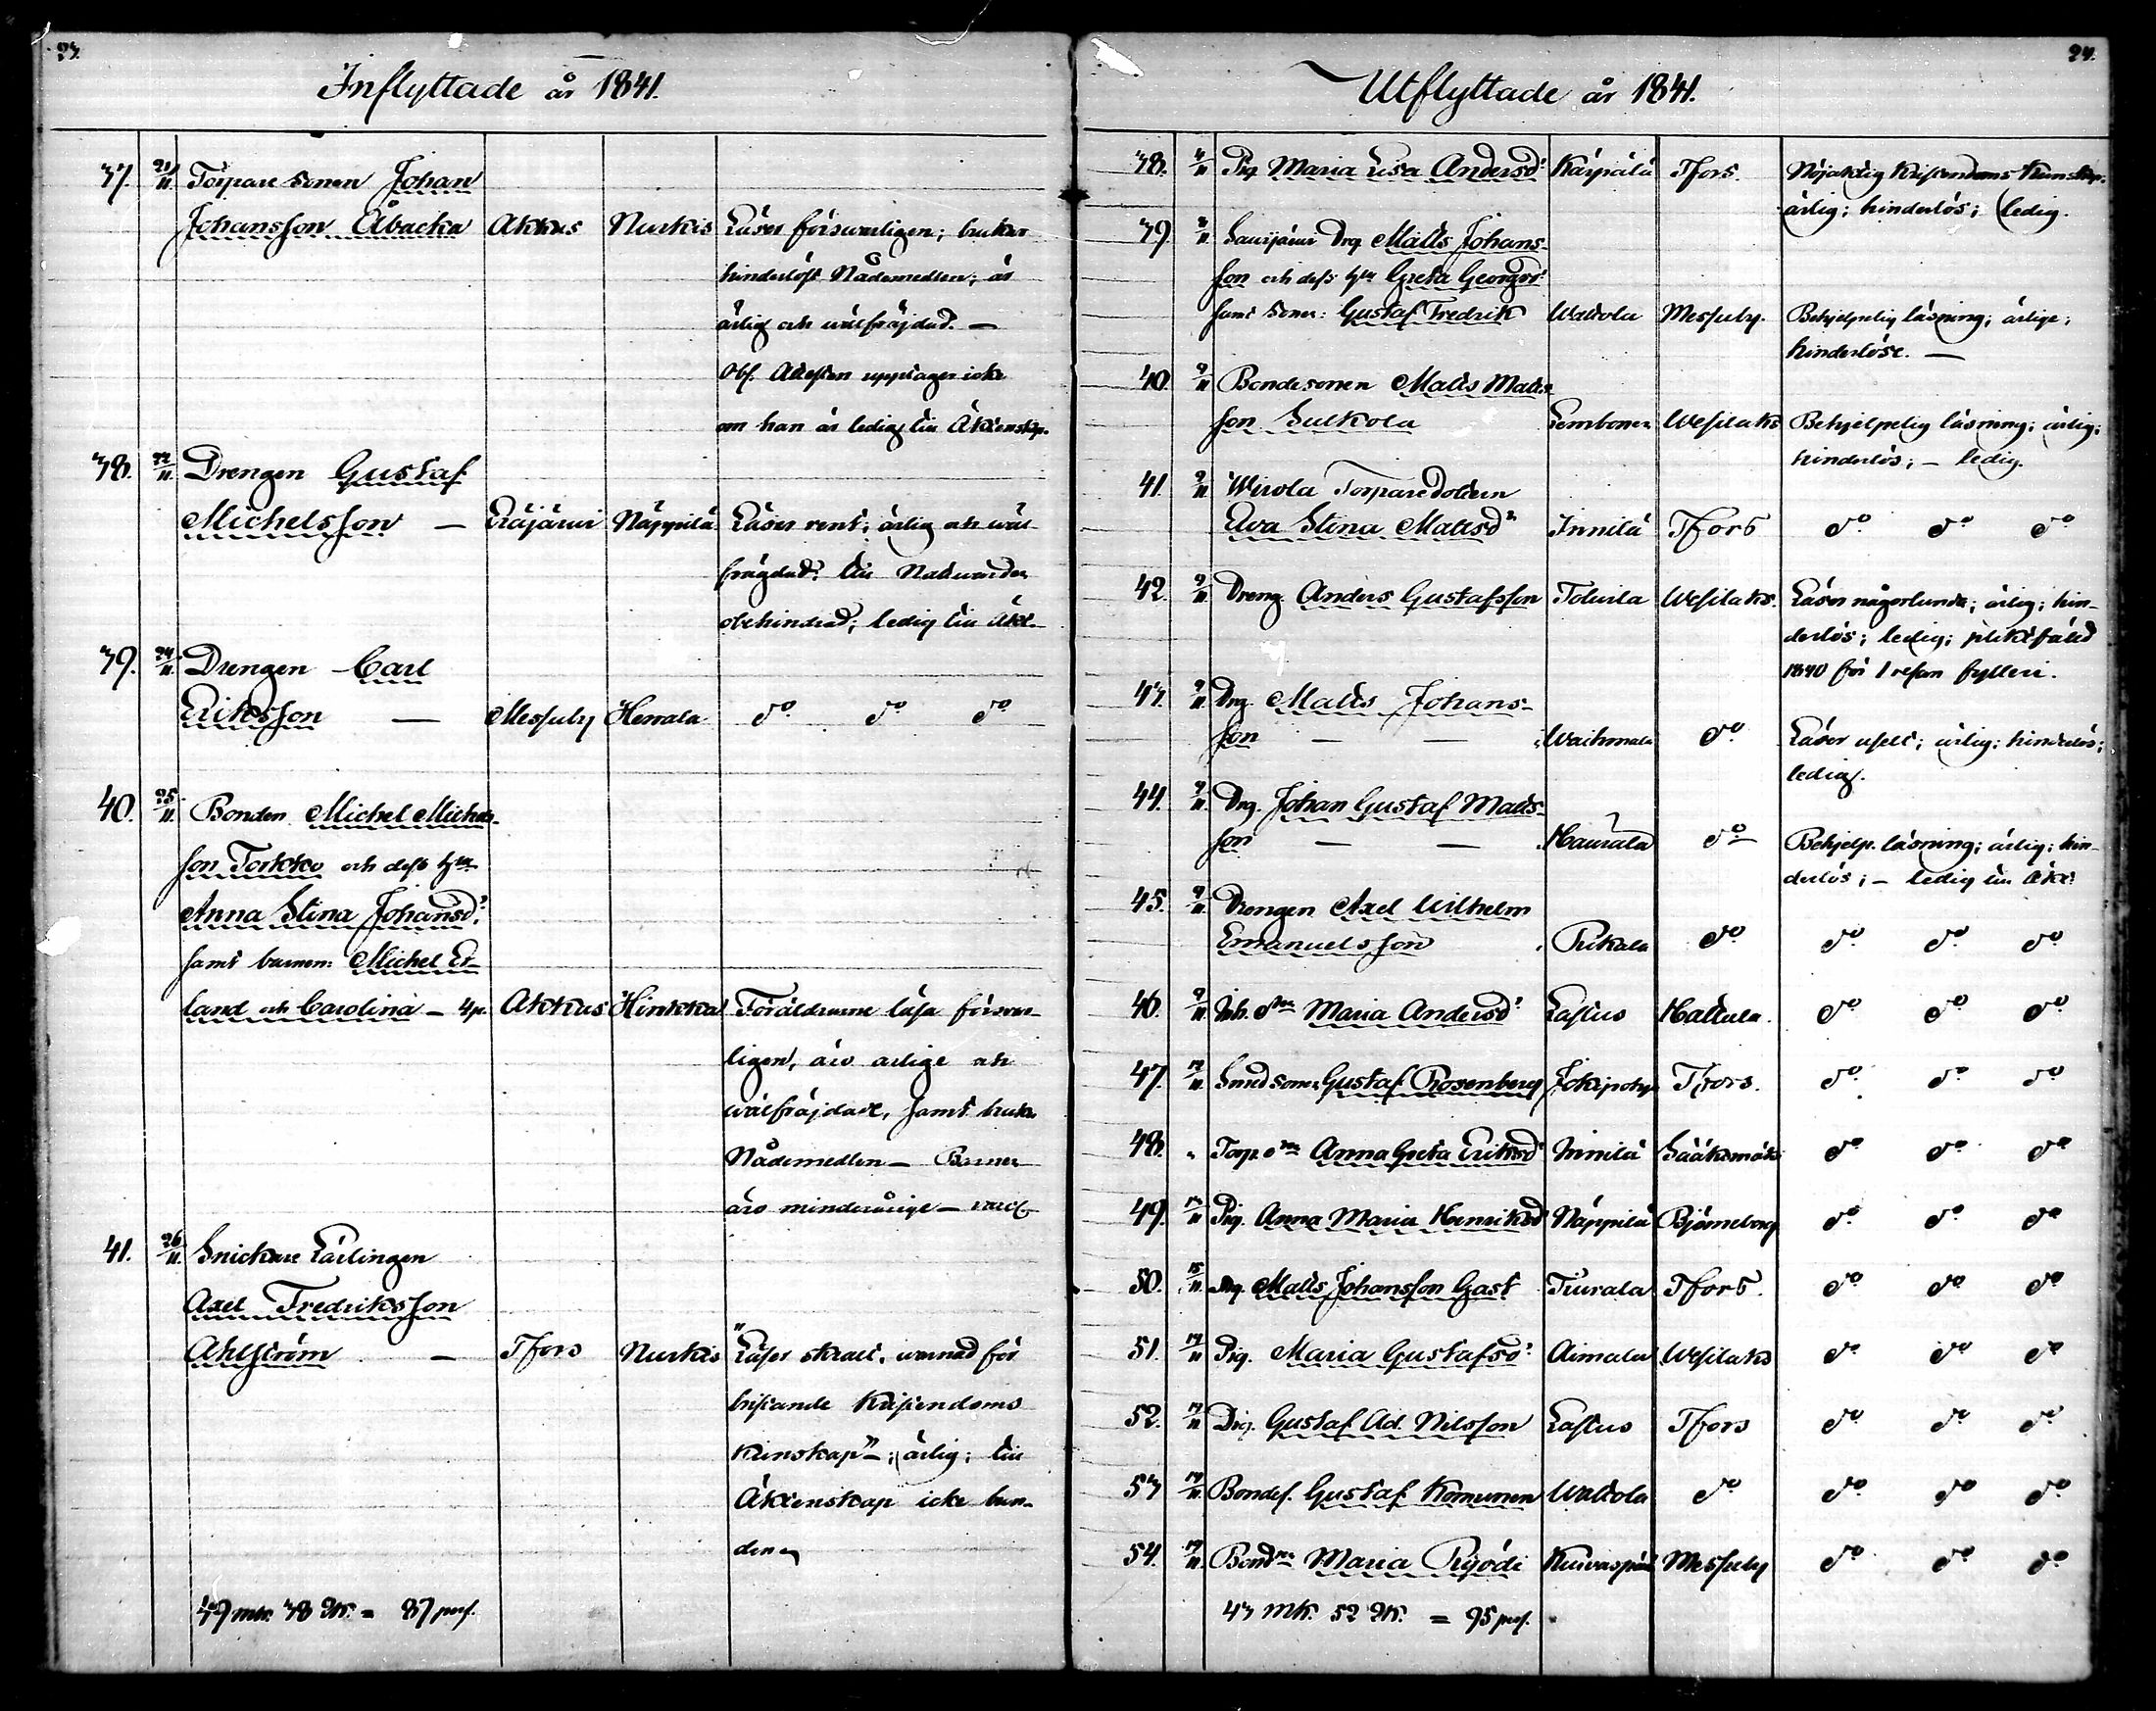 23.
Inflyttade år 1841.
37. 21/11 Torpare sonen Johan
Johansson Åbacka Akkas Nurkis Läser försvarligen; brukar
hinderlöst Nådemedlen; är
ärlig och wälfräjdad. —
Obs. Attesten upptager icke
om han är ledig till Äktenskap.
38. 22/11 Drengen Gustaf
Michelsson — Eräjärvi Näppilä Läser rent; ärlig och wäl
frägdad; till Nattwarden
obehindrad; ledig till Äkt.
39. 24/11 Drengen Carl
Eriksson — Messuby Herrala do do do
40. 25/11 Bonden Michel Michels-
son Torkko och dess hu
Anna Stina Johansdr
samt barnen: Michel Er-
land och Carolina — 4 p. Akkas Hinkka Föräldrarne läsa försvar-
ligen, äro ärlige och
wälfräjdade, samt bruka
Nådemedlen — Barnen
äro minderårige —
41. 26/11 Snickare Lärlingen
Axel Fredriksson
Ahlström — Tfors Nurkis "Läser skralt, warnad för
bristande Kristendoms
kunskap" —; ärlig; till
Äktenskap icke bun-
den
49 mk. 38 Qk. = 87 pers.
24.
Utflyttade år 1841.
38. 4/11 Pig. Maria Lisa Andersdr Kärpälä Tfors. Nöjaktig Kristendoms Kunskap.
ärlig; hinderlös; (ledig.
39. 8/11 Saurijärvi Drg. Matts Johans-
son och dess hu Greta Georgsdr
samt sonen: Gustaf Fredrik Waltola Messuby. Behjelpelig läsning; ärlige;
hinderlöse. —
40. 9/11 Bondesonen Matts Matts-
son Sulkola Lembonen Wesilaks Behjelpelig läsning; ärlig;
hinderlös; — ledig.
41. 9/11 Wirola Torparedottern
Eva Stina Mattsdr Innilä Tfors do do do
42. 9/11 Dreng. Anders Gustafsson Tolvila Wesilaks. Läser någorlunda; ärlig; hin-
derlös; ledig; pliktfälld
1840 för 1 resan fylleri.
43. 9/11 Drg. Matts Johans-
son — — Waihmala do Läser uselt; ärlig; hinderlös;
ledig.
44. 9/11 Drg. Johan Gustaf Matts-
son — — Haurala do Behjelp. läsning; ärlig; hin-
derlös; — ledig till Äkt.
45. 9/11 Drengen Axel Wilhelm
Emanuelsson Rikala do do do do
46. 9/11 Inh. dtr Maria Andersdr Lastus Hattula. do do do
47. 12/11 Smedsonen Gustaf Rosenberg Jokipohja Tfors. do do do
48. " Torp. dtr Anna Greta Eriksdr Innilä Sääksmäki do do do
49. 12/11 Pig. Anna Maria Henriksdr Näppilä Björneborg do do do
50. 15/11 Drg. Matts Johansson Gast Tiurala Tfors. do do do
51. 17/11 Pig. Maria Gustafsdr Aimala Wesilaks do do do
52. 17/11 Drg. Gustaf Ad. Nilsson Lastus Tfors do do do
53 17/11 Bondes. Gustaf Komunen Waltola do do do do
54. 17/11 Bonddtr Maria Pyödi Kuivaspää Messuby do do do
43 Mk. 52 Qk. = 95 pers.